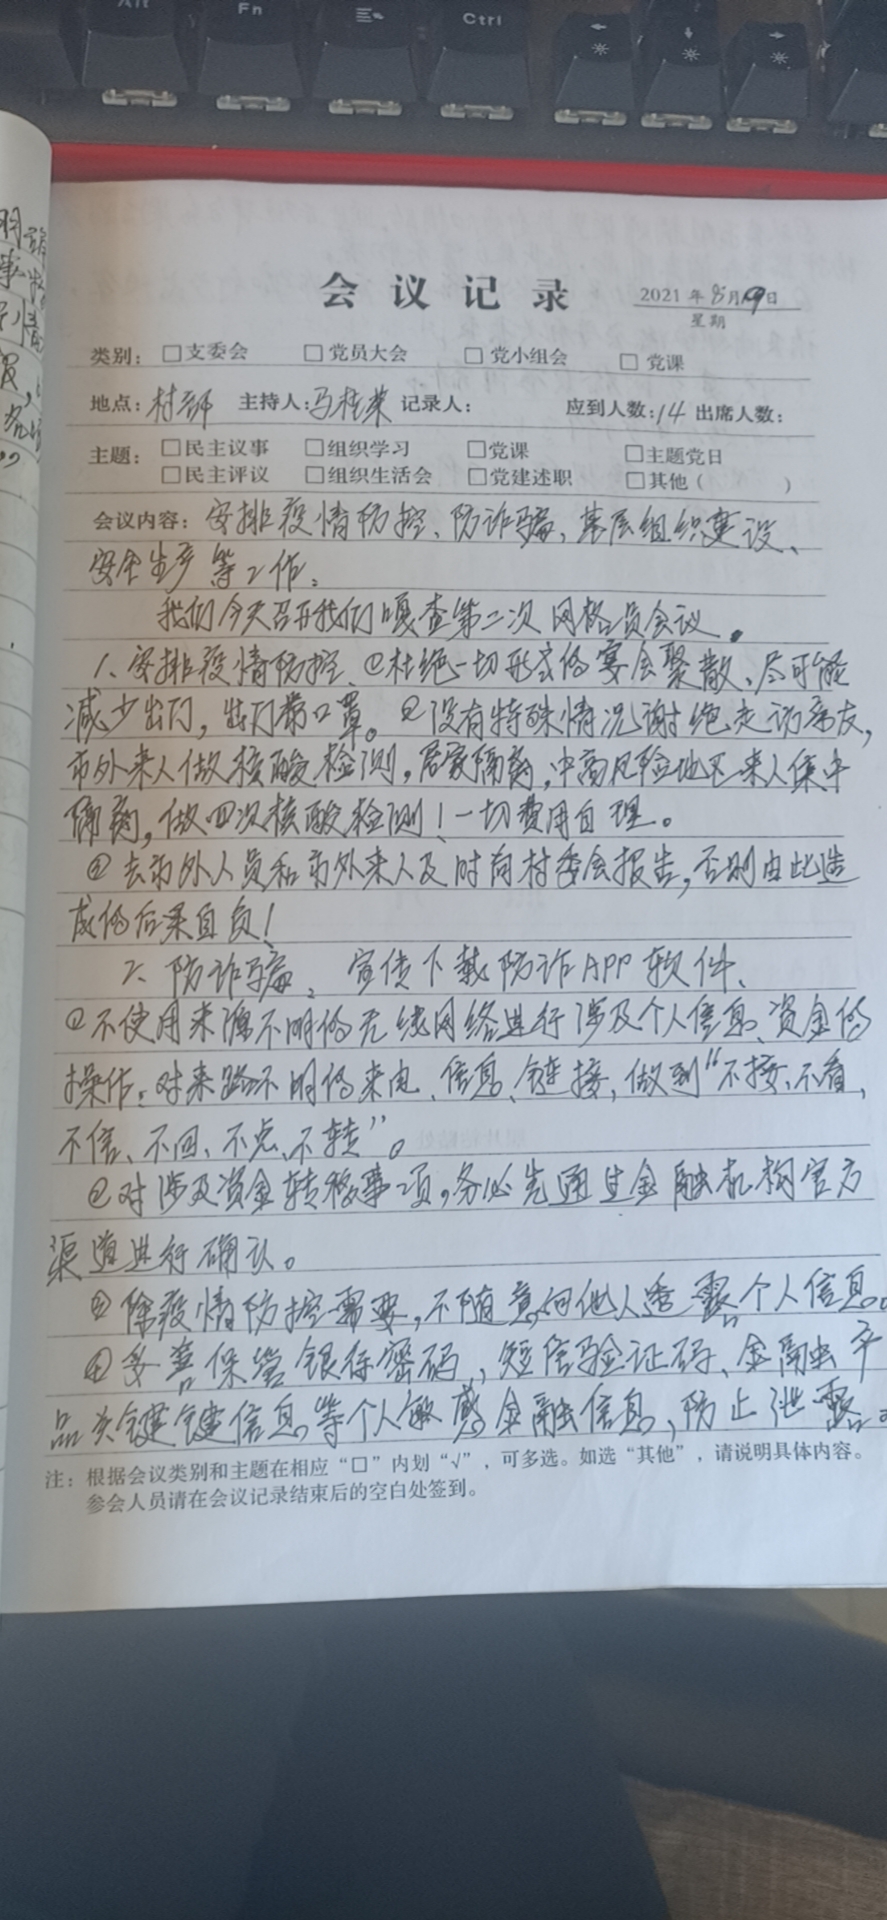 Alt Fn Ctrl
会议记录 2021年8月19日
星期
类别： □支委会 □党员大会 □党小组会 □党课
地点：村部 主持人：马桂荣 记录人： 应到人数：14 出席人数：
主题： □民主议事 □组织学习 □党课 □主题党日
□民主评议 □组织生活会 □党建述职 □其他（ ）
会议内容：安排疫情防控、防诈骗、基层组织建设、
安全生产等工作。
我们今天召开我们嘎查第二次网格员会议。
1、安排疫情防控、①杜绝一切形式的宴会聚散、尽可能
减少出门，出门带口罩。②没有特殊情况谢绝走访亲友，
市外来人做核酸检测，居家隔离，中高风险地区来人集中
隔离，做四次核酸检测！一切费用自理。
③去市外人员和市外来人及时向村委会报告，否则由此造
成的后果自负！
2、防诈骗，宣传下载防诈APP软件、
①不使用来源不明的无线网络进行涉及个人信息、资金的
操作；对来路不明的来电、信息、链接，做到“不接、不看，
不信、不回、不点、不转”。
②对涉及资金转移事项，务必先通过金融机构官方
渠道进行确认。
③除疫情防控需要，不随意向他人透露个人信息。
④妥善保管银行密码，短信验证码、金融产
品关键键信息等个人敏感金融信息，防止泄露。
注：根据会议类别和主题在相应“□”内划“√”，可多选。如选“其他”，请说明具体内容。
参会人员请在会议记录结束后的空白处签到。